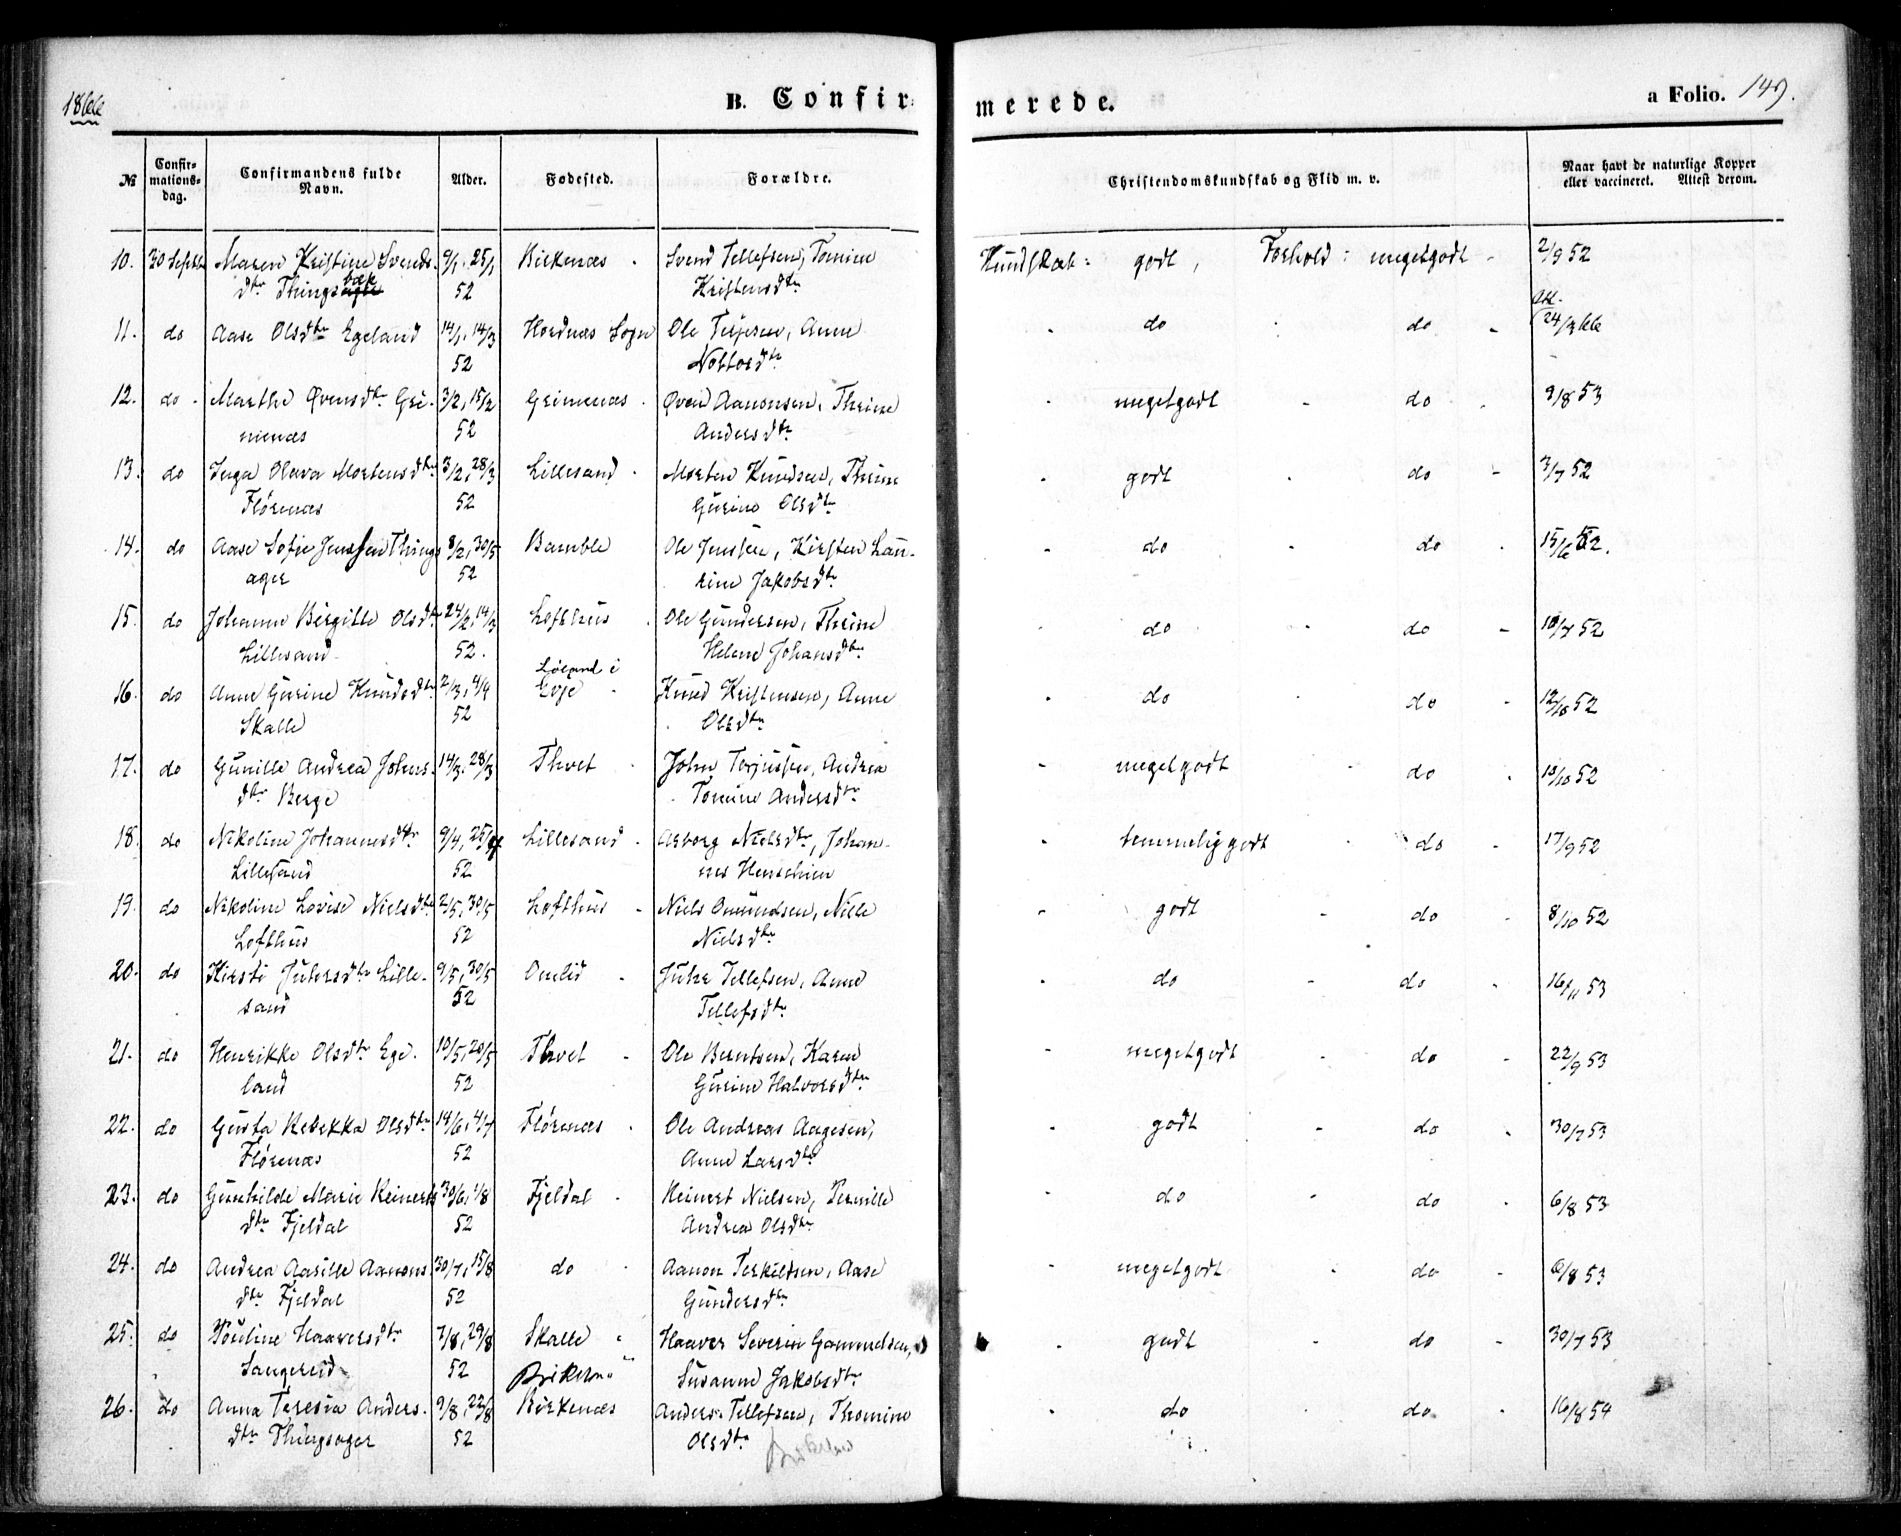 1866
B. Confir-
merede.
a Folio. 149.
№
Confir-
mations-
dag.
Confirmandens fulde
Navn.
Alder.
Fødested.
Forældre.
Christendomskundskab og Flid m. v.
Naar havt de naturlige Kopper
eller vaccineret. Attest derom.
10. 30 Septbr Maren Kristine Svends- 9/1, 25/1 Birkenæs Svend Tellefsen, Tomine Kundskab: godt, Forhold: megetgodt 2/9 52
dtr Thingsbæk 52 Kristensdtr
11. do Aase Olsdtr Egeland 14/1, 14/3 Hordnæs Sogn Ole Terjesen, Anne do do 24/3 66
52
12. do Marthe Øvensdtr Gri- 3/2, 15/2 Grimenæs Øven Aanonsen, Thrine megetgodt do 9/8 53
menæs 52 Andersdtr
13. do Inga Olava Mortensdtr 3/2, 28/3 Lillesand Morten Knudsen, Thrine godt do 3/7 52
Flørenæs 52 Gurine Olsdtr
14. do Aase Sofie Jenssen Things- 8/2, 30/5 Bamble Ole Jenssen, Kirsten Lau- do do 15/6 52.
ager 52 rine Jakobsdtr
15. do Johanne Birgitte Olsdtr 24/2, 14/3 Lofthus Ole Gundersen, Thrine do do 10/7 52
Lillesand 52. Helene Johansdtr
16. do Anne Gurine Knudsdtr 2/3, 4/4 Evje Knud Kristensen, Anne do do 12/10 52
Skalle 52 Olsdtr
17. do Gunille Andrea Johns- 14/3, 28/3 Thvet John Terjussen, Andrea megetgodt do 13/10 52
dtr Berge Tomine Andersdtr
18. do Nikoline Johannesdtr 9/4, 25/4 Lillesand Asborg Nielsdtr, Johan- temmeliggodt do 17/9 52
Lillesand 52 nes Henschien
19. do Nikoline Lovise Nielsdtr 2/5, 30/5 Lofthus Niels Omundsen, Nille godt do 8/10 52
Lofthus 52 Nielsdtr
20. do Kirsti Julersdtr Lille- 9/5, 30/5 Omlid Tellefsen, Anne do do 16/11 53
sand 52 Tellefsdtr
21. do Henrikke Olsdtr Ege- 10/5, 20/5 Thvet Ole Berntsen, Karen megetgodt do 22/9 53
land 52 Gurine Halvorsdtr
22. do Gusta Rebekka Olsdtr 14/6, 4/7 Flørenæs Ole Andreas Aagesen, godt do 30/7 53
Flørenæs 52 Anne Larsdtr
23. do Gunhilde Marie Reinerts 30/6, 1/8 Fjeldal Reinert Nielsen, Pernille do do 6/8 53
dtr Fjeldal 52 Andrea Olsdtr
24. do Andrea Aasille Aanons- 30/7, 15/8 do Aanon Terkildsen, Aase megetgodt do 6/8 53
dtr Fjeldal 52 Gundersdtr
25. do Pouline Haaversdtr 7/8, 29/8 Skalle Haaver Severin Gammelsen, godt do 30/7 53
Sangereid 52 Susanne Jakobsdtr
26. do Anna Teresia Anders- 9/8, 22/8 Birkenæs Anders Tellefsen, Thomine do do 16/8 54
dtr Thingsager 52 Olsdtr